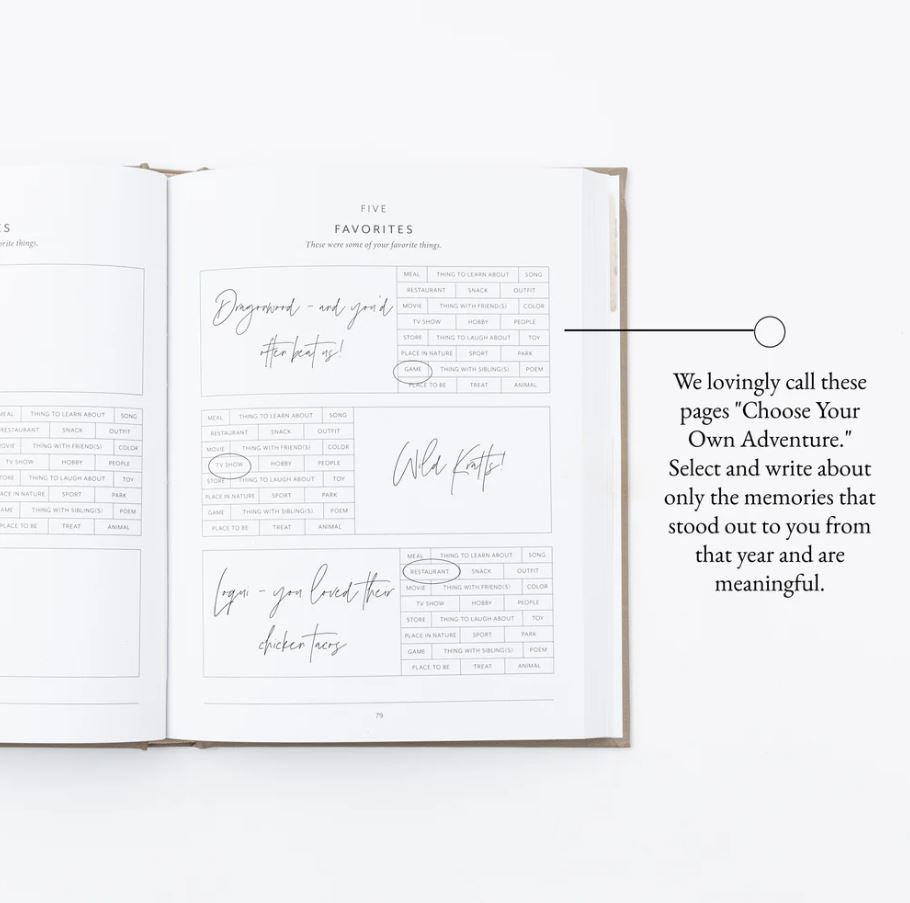 ES
favorite things.
MEAL THING TO LEARN ABOUT SONG
RESTAURANT SNACK OUTFIT
MOVIE THING WITH FRIEND(S) COLOR
TV SHOW HOBBY PEOPLE
STORE THING TO LAUGH ABOUT TOY
PLACE IN NATURE SPORT PARK
GAME THING WITH SIBLING(S) POEM
PLACE TO BE TREAT ANIMAL
FIVE
FAVORITES
These were some of your favorite things.
Dragonwood - and you'd
often beat us!
MEAL THING TO LEARN ABOUT SONG
RESTAURANT SNACK OUTFIT
MOVIE THING WITH FRIEND(S) COLOR
TV SHOW HOBBY PEOPLE
STORE THING TO LAUGH ABOUT TOY
PLACE IN NATURE SPORT PARK
GAME THING WITH SIBLING(S) POEM
PLACE TO BE TREAT ANIMAL
MEAL THING TO LEARN ABOUT SONG
RESTAURANT SNACK OUTFIT
MOVIE THING WITH FRIEND(S) COLOR
TV SHOW HOBBY PEOPLE
STORE THING TO LAUGH ABOUT TOY
PLACE IN NATURE SPORT PARK
GAME THING WITH SIBLING(S) POEM
PLACE TO BE TREAT ANIMAL
Wild Kratts!
Loqui - you loved their
chicken tacos
MEAL THING TO LEARN ABOUT SONG
RESTAURANT SNACK OUTFIT
MOVIE THING WITH FRIEND(S) COLOR
TV SHOW HOBBY PEOPLE
STORE THING TO LAUGH ABOUT TOY
PLACE IN NATURE SPORT PARK
GAME THING WITH SIBLING(S) POEM
PLACE TO BE TREAT ANIMAL
79
We lovingly call these
pages "Choose Your
Own Adventure."
Select and write about
only the memories that
stood out to you from
that year and are
meaningful.